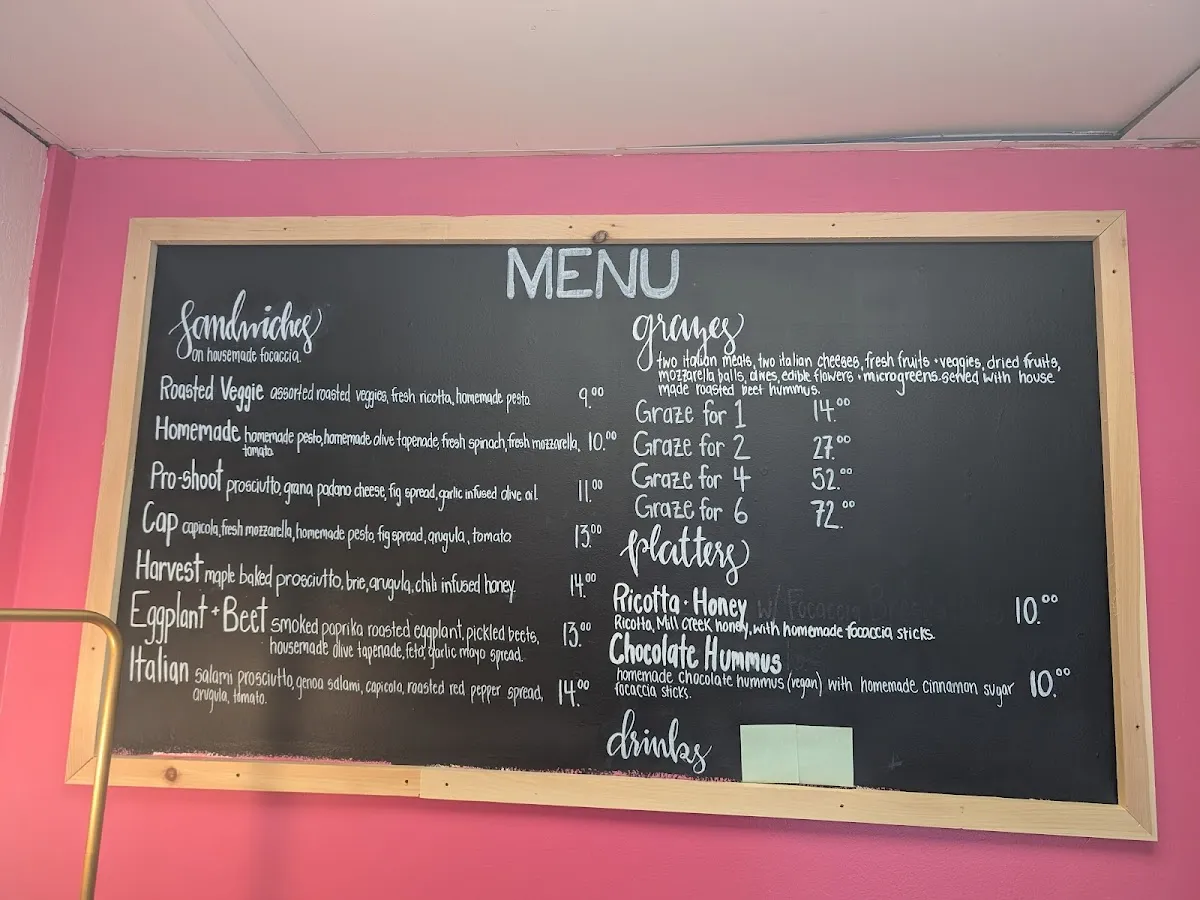 MENU
Sandwiches
on housemade focaccia.
Roasted Veggie assorted roasted veggies, fresh ricotta, homemade pesto. 9.00
Homemade homemade pesto, homemade olive tapenade, fresh spinach, fresh mozzarella, 10.00
tomato.
Pro-shoot prosciutto, grana padano cheese, fig spread, garlic infused olive oil. 11.00
Cap capicola, fresh mozzarella, homemade pesto, fig spread, arugula, tomato 13.00
Harvest maple baked prosciutto, brie, arugula, chili infused honey. 14.00
Eggplant + Beet smoked paprika roasted eggplant, pickled beets, 13.00
housemade olive tapenade, feta, garlic mayo spread.
Italian salami prosciutto, genoa salami, capicola, roasted red pepper spread, 14.00
arugula, tomato.
grazes
two italian meats, two italian cheeses, fresh fruits + veggies, dried fruits,
mozzarella balls, olives, edible flowers + microgreens. served with house
made roasted beet hummus.
Graze for 1 14.00
Graze for 2 27.00
Graze for 4 52.00
Graze for 6 72.00
platters
Ricotta + Honey w/ Focaccia 10.00
Ricotta, Mill Creek honey, with homemade focaccia sticks.
Chocolate Hummus
homemade chocolate hummus (vegan) with homemade cinnamon sugar 10.00
focaccia sticks.
drinks